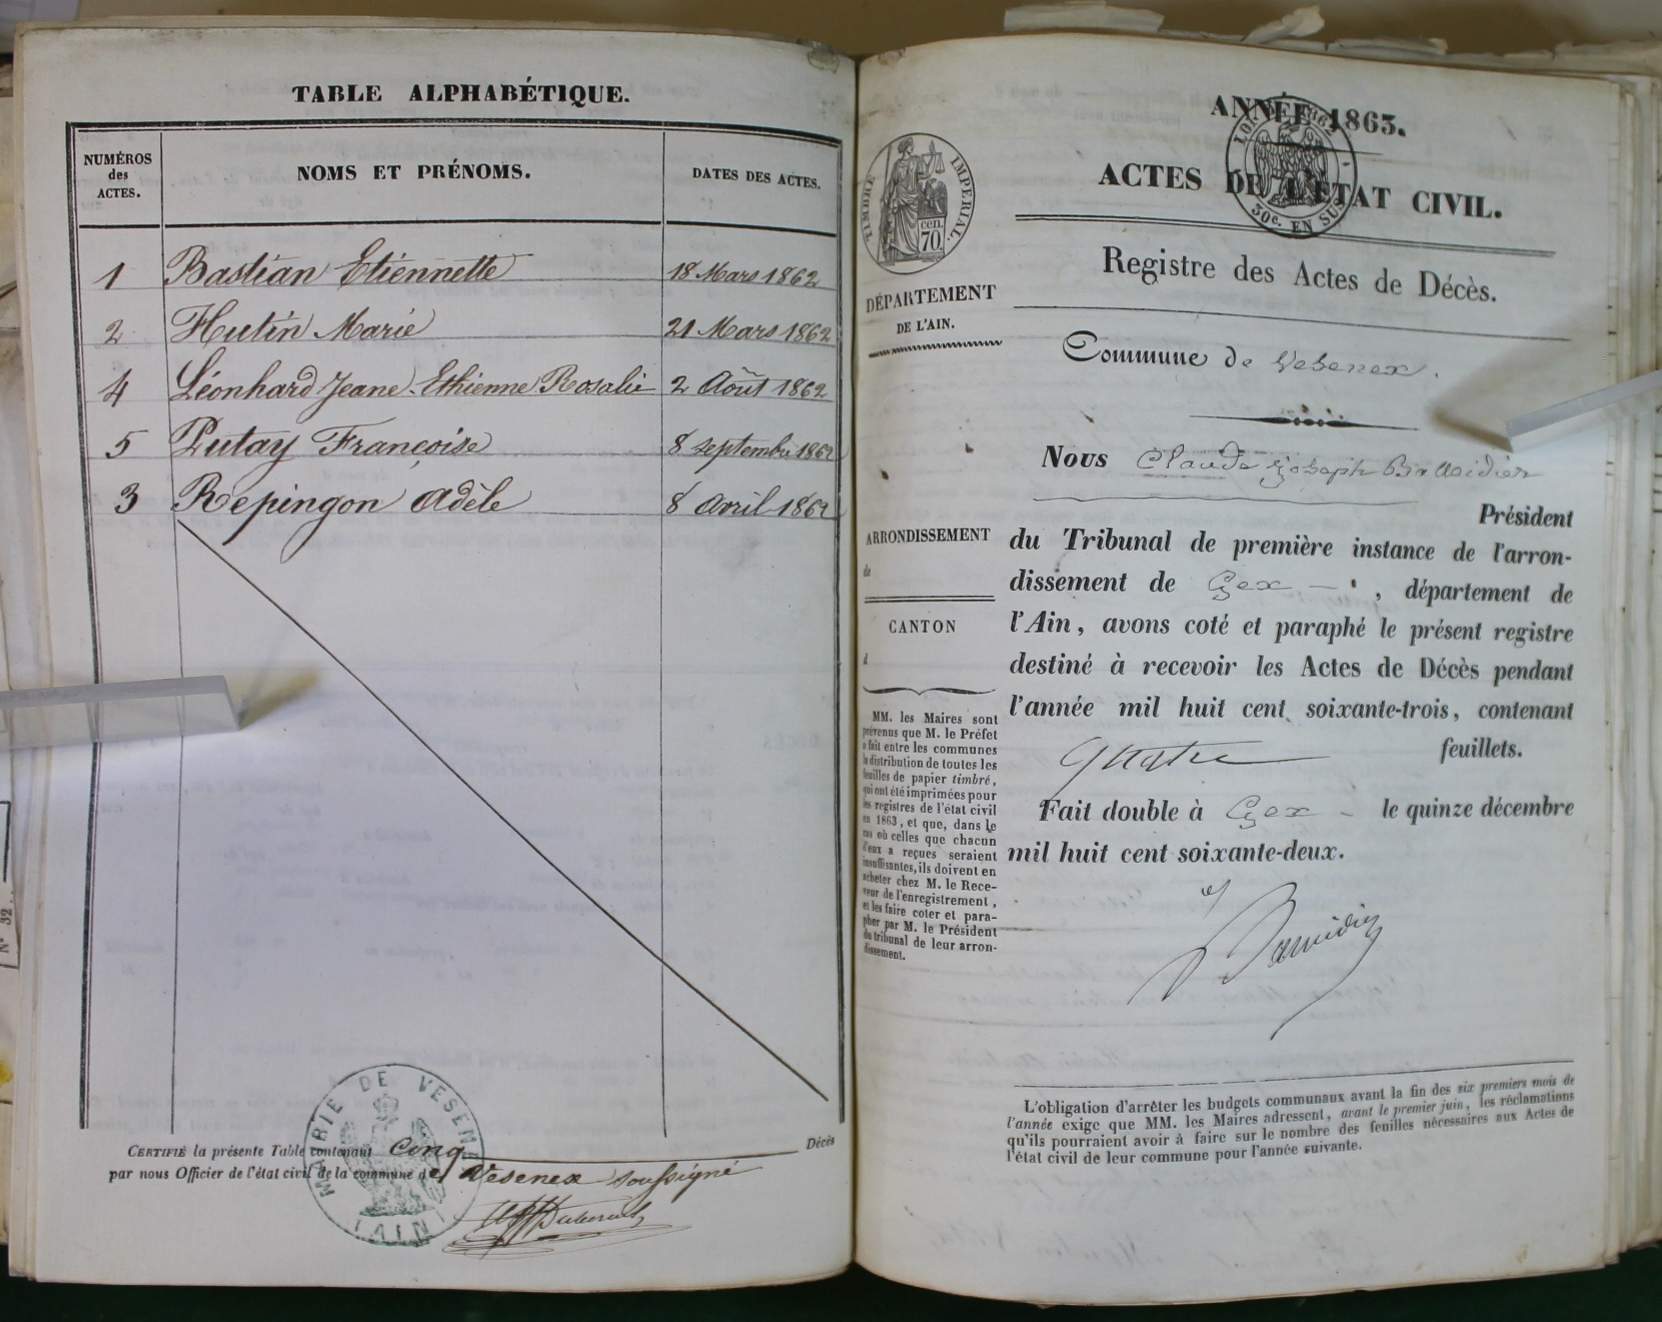 TABLE ALPHABÉTIQUE.
NUMÉROS
des
ACTES.
NOMS ET PRÉNOMS.
DATES DES ACTES.
1 Bastian Etiennette 18 Mars 1862
2 Hutin Marie 21 Mars 1862
4 Léonhard Jeane-Ethienne Rosalie 2 Août 1862
5 Putay Françoise 8 septembre 1862
3 Repingon Adèle 8 Avril 1862
CERTIFIÉ la présente Table contenant cinq Décès
par nous Officier de l'état civil de la commune de Vesenex soussigné
MAIRIE DE VESENEX
(AIN)
ANNÉE 1863.
ACTES DE L'ÉTAT CIVIL.
30c. EN SUS
TIMBRE IMPERIAL.
70 cen.
Registre des Actes de Décès.
DÉPARTEMENT
DE L'AIN.
Commune de Vesenex.
Nous Claude Joseph
Président
du Tribunal de première instance de l'arron-
dissement de Gex, département de
l'Ain, avons coté et paraphé le présent registre
destiné à recevoir les Actes de Décès pendant
l'année mil huit cent soixante-trois, contenant
quatre feuillets.
Fait double à Gex - le quinze décembre
mil huit cent soixante-deux.
ARRONDISSEMENT
de
CANTON
d
MM. les Maires sont
prévenus que M. le Préfet
a fait entre les communes
la distribution de toutes les
feuilles de papier timbré,
qui ont été imprimées pour
les registres de l'état civil
en 1863, et que, dans le
cas où celles que chacun
d'eux a reçues seraient
insuffisantes, ils doivent en
acheter chez M. le Rece-
veur de l'enregistrement,
et les faire coter et para-
pher par M. le Président
du tribunal de leur arron-
dissement.
L'obligation d'arrêter les budgets communaux avant la fin des six premiers mois de
l'année exige que MM. les Maires adressent, avant le premier juin, les réclamations
qu'ils pourraient avoir à faire sur le nombre des feuilles nécessaires aux Actes de
l'état civil de leur commune pour l'année suivante.
N° 32